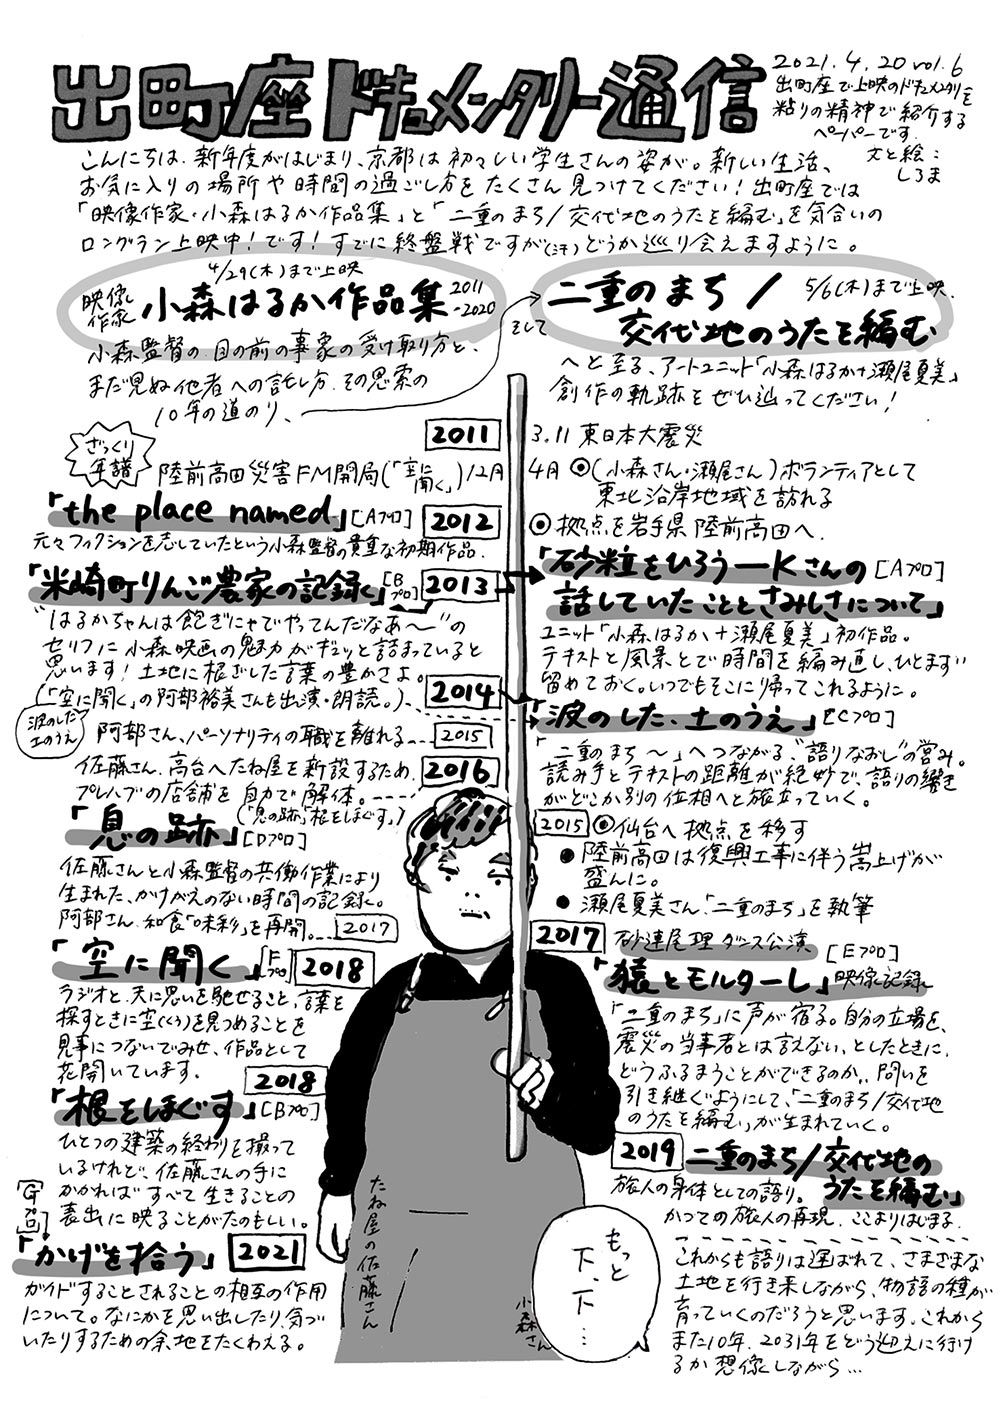 出町座ドキュメンタリー通信
2021.4.20 vol.6
出町座で上映のドキュメンタリーを
粘りの精神で紹介する
ペーパーです。
文と絵：
しろま
こんにちは。新年度がはじまり、京都は初々しい学生さんの姿が。新しい生活、
お気に入りの場所や時間の過ごし方をたくさん見つけてください！出町座では
「映像作家・小森はるか作品集」と「二重のまち/交代地のうたを編む」を気合いの
ロングラン上映中！です！すでに終盤戦ですが(汗)どうか巡り会えますように。
4/29(木)まで上映
映像作家 小森はるか作品集 2011-2020
小森監督の目の前の事象の受け取り方と、
まだ見ぬ他者への託し方、その思索の
10年の道のり、
そして
二重のまち/ 5/6(木)まで上映.
交代地のうたを編む
へと至る、アートユニット「小森はるか+瀬尾夏美」
創作の軌跡をぜひ辿ってください！
ざっくり
年譜
2011
3.11 東日本大震災
陸前高田災害FM開局(「空に聞く」)12月
4月 ◉(小森さん・瀬尾さん)ボランティアとして
東北沿岸地域を訪れる
「the place named」[Aプロ] 2012
◉拠点を岩手県陸前高田へ.
元々フィクションを志していたという小森監督の貴重な初期作品.
「米崎町りんご農家の記録」[Bプロ] 2013
“はるかちゃんは飽ぎにゃでやってんだなあ〜”の
セリフに小森映画の魅力がギュッと詰まっていると
思います！土地に根ざした言葉の豊かさよ。
(「空に聞く」の阿部裕美さんも出演・朗読。)
「砂粒をひろう―Kさんの [Aプロ]
話していたこととさみしさについて」
ユニット「小森はるか+瀬尾夏美」初作品。
テキストと風景とで時間を編み直し、ひとまず
留めておく。いつでもそこに帰ってこれるように。
2014
波のした、
土のうえ
「波のした、土のうえ」[Cプロ]
阿部さん、パーソナリティの職を離れる 2015
「二重のまち〜」へつながる“語りなおし”の営み。
読み手とテキストの距離が絶妙で、語りの響き
がどこか別の位相へと旅立っていく。
佐藤さん、高台へたね屋を新設するため、 2016
プレハブの店舗を自力で解体。
(「息の跡」「根をほぐす」)
「息の跡」[Dプロ]
佐藤さんと小森監督の共働作業により
生まれた、かけがえのない時間の記録。
阿部さん、和食「味彩」を再開。 2017
2015 ◉仙台へ拠点を移す
●陸前高田は復興工事に伴う嵩上げが
盛んに。
●瀬尾夏美さん、「二重のまち」を執筆
「空に聞く」[Fプロ] 2018
ラジオと、天に思いを馳せること、言葉を
探すときに空(くう)を見つめることを
見事につないでみせ、作品として
花開いています。
2017 砂連尾理ダンス公演 [Eプロ]
「猿とモルターレ」映像記録
「二重のまち」に声が宿る。自分の立場を、
震災の当事者とは言えない、としたときに、
どうふるまうことができるのか.. 問いを
引き継ぐようにして、「二重のまち/交代地
のうたを編む」が生まれていく。
2018
「根をほぐす」[Bプロ]
ひとつの建築の終わりを撮って
いるけれど、佐藤さんの手に
かかればすべて生きることの
表出に映ることがたのもしい。
2019 二重のまち/交代地の
うたを編む」
旅人の身体としての語り。
かつての旅人の再現、ここよりはじまる.
[Gプロ]
「かげを拾う」 2021
ガイドすることされることの相互の作用
について。なにかを思い出したり、気づ
いたりするための余地をたくわえる。
これからも語りは運ばれて、さまざまな
土地を行き来しながら、物語の種が
育っていくのだろうと思います。これから
また10年、2031年をどう迎えに行け
るか想像しながら…
たね屋の佐藤さん
もっと
下、下…
小森さん